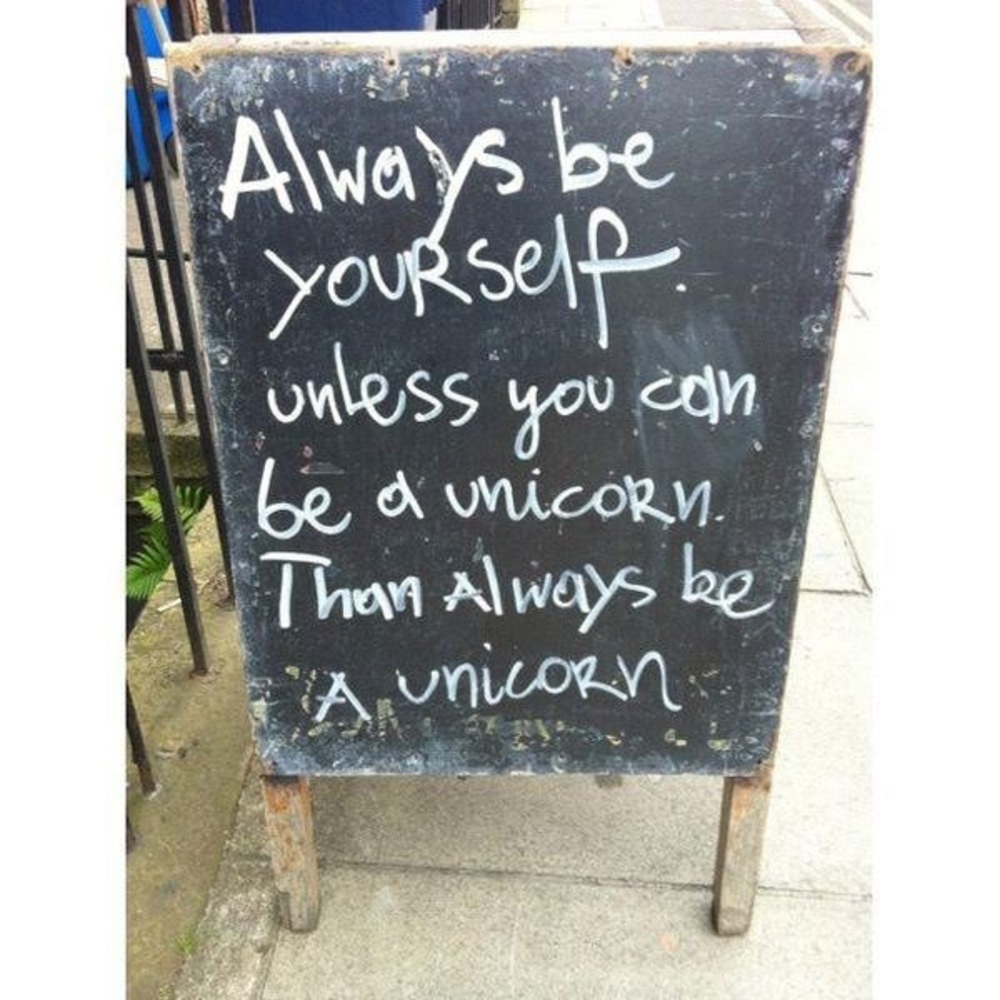 Always be
yourself.
unless you can
be a unicorn.
Than Always be
A unicorn